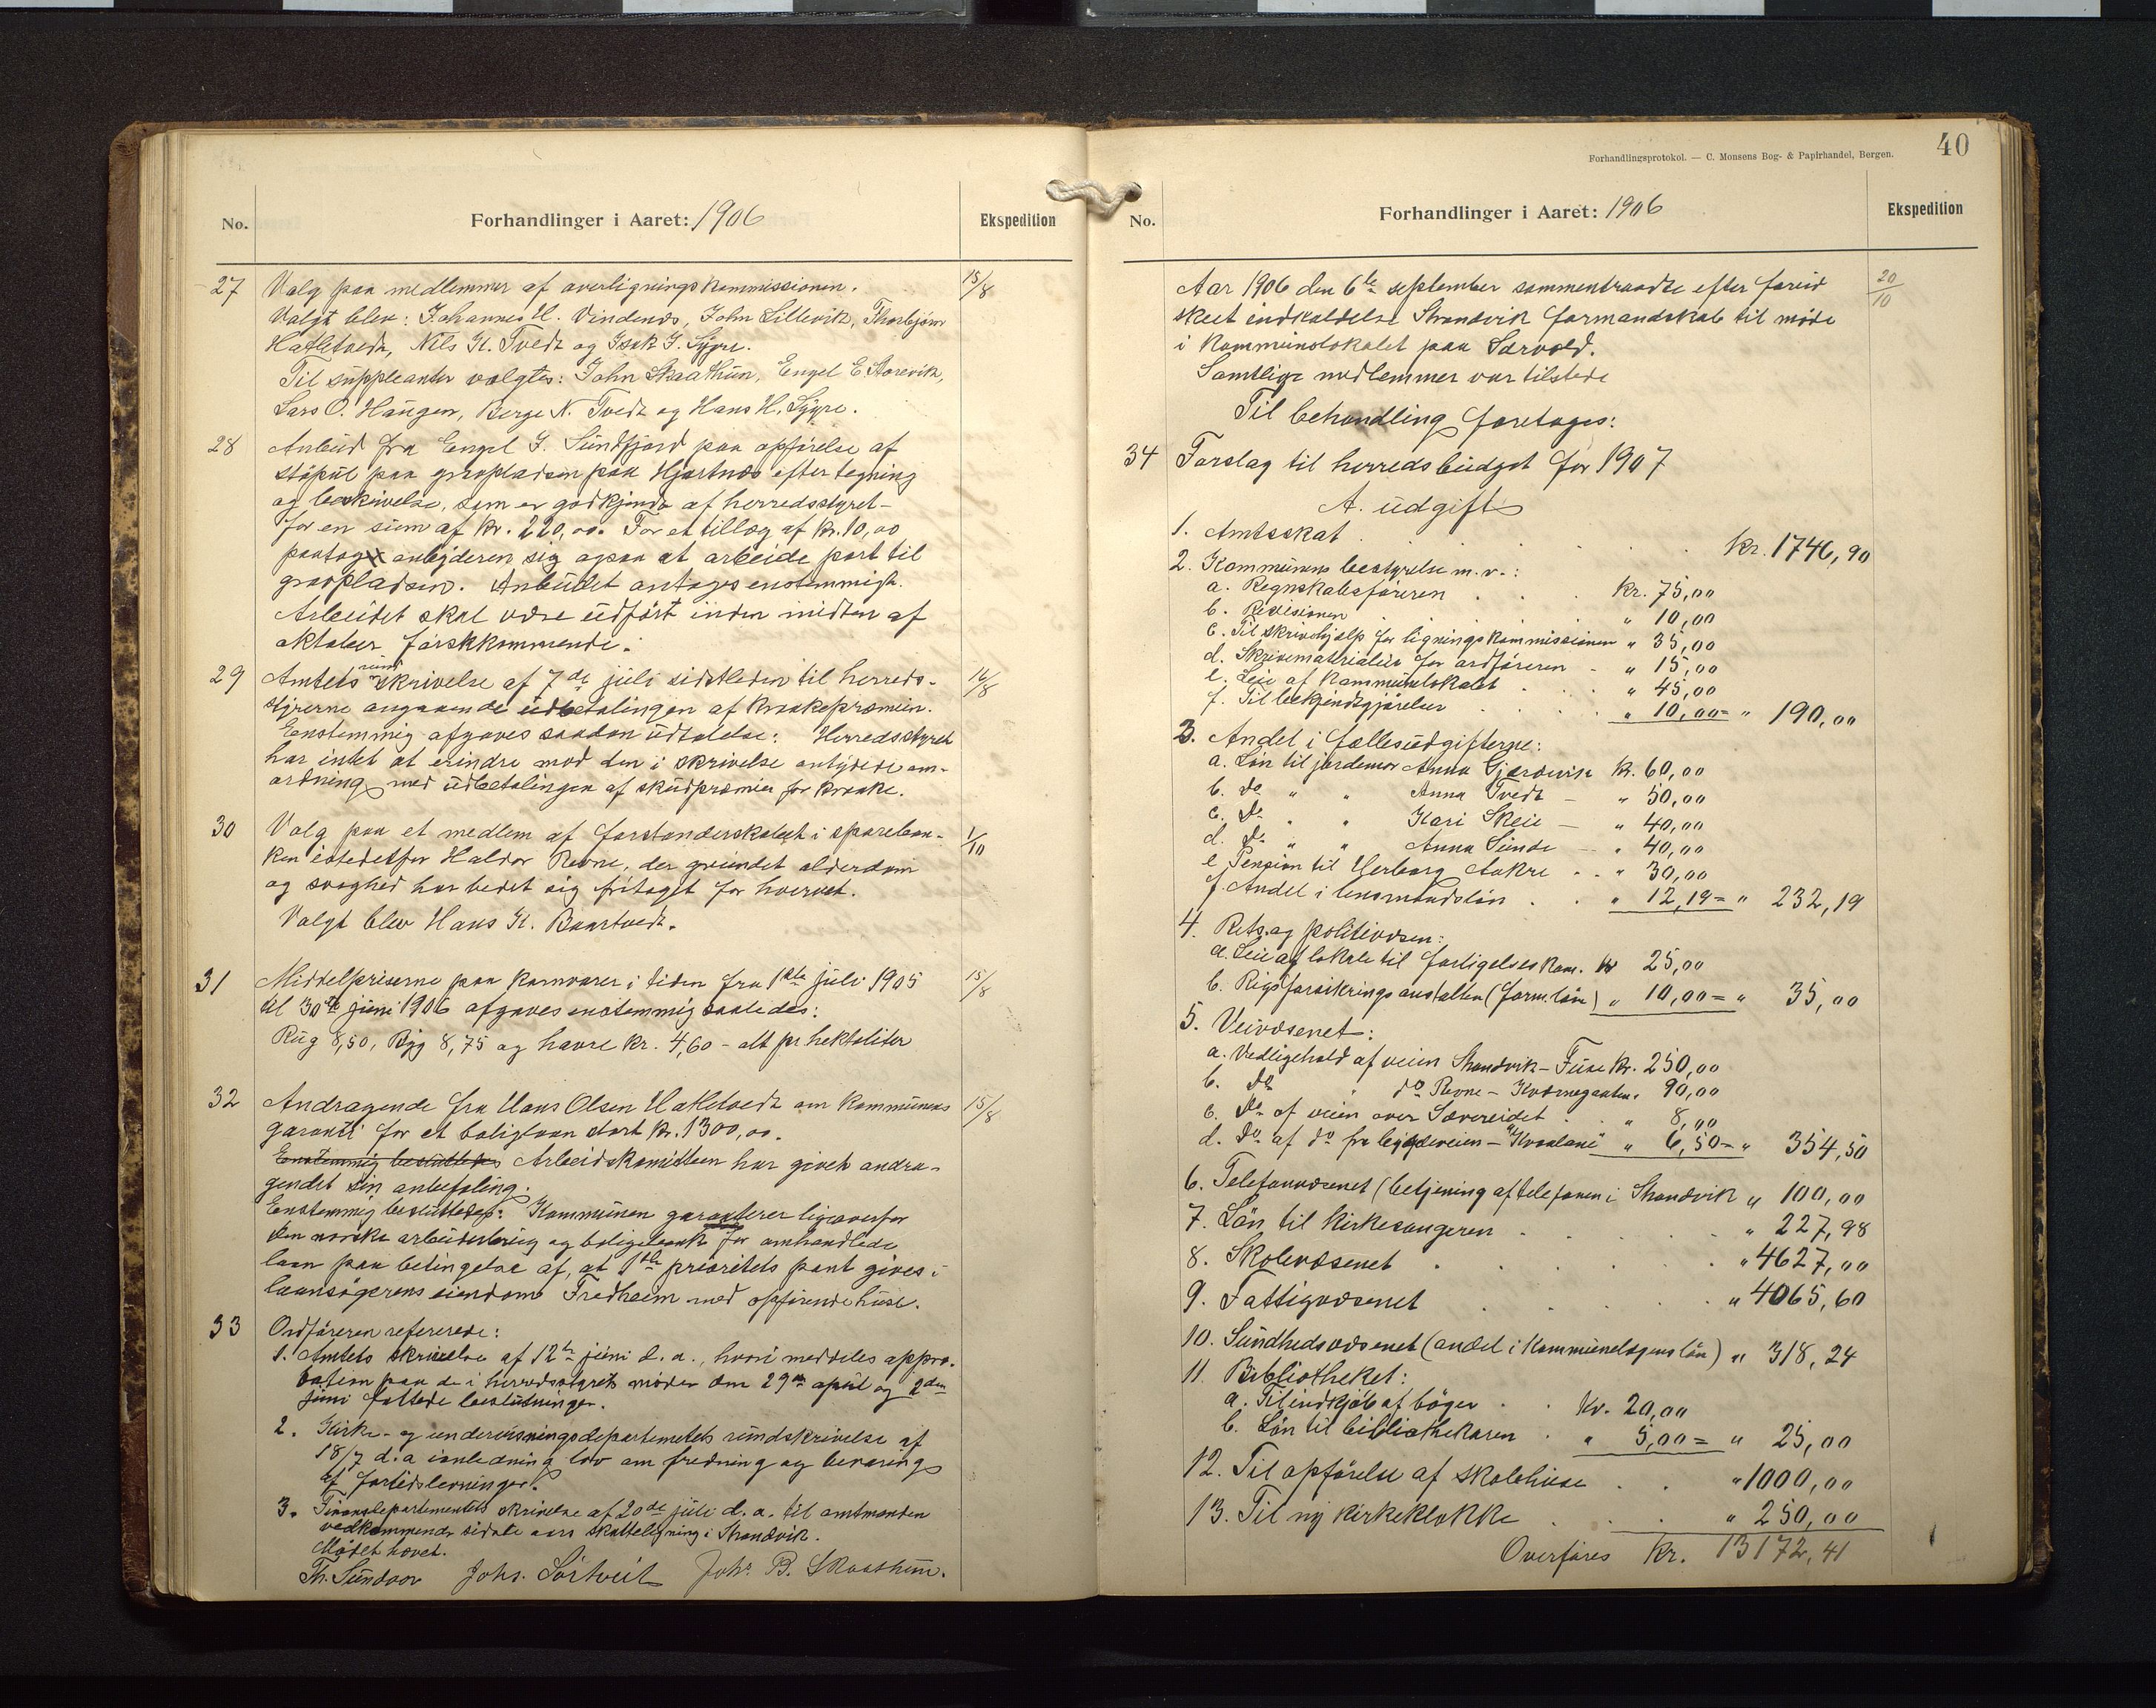 No.
Forhandlinger i Aaret: 1906
Ekspedition
27 Valg paa medlemmer af overligningskommissionen. 15/8
Valgt blev: Johannes H. Vindenes, John Lillevik, Thorbjørn
Hatletvedt, Nils K. Tvedt og Isak J. Sÿgre.
Til suppleanter valgtes: John Skaathün, Engel E. Storevik,
Lars O. Haügen, Berge N. Tvedt og Hans H. Sÿgre.
28 Anbüd fra Engel J. Sündfjord paa opførelse af
støpül paa gravpladsen paa Hjartnæs efter tegning
og beskrivelse, som er godkjendt af herredsstyret -
for en süm af kr. 220,00. For et tillæg af kr. 10,00
paatog anbÿderen sig ogsaa at arbeide port til
gravpladsen. Anbüdet antages enstemmigt.
Arbeidet skal være üdført inden midten af
oktober førstkkommende.
29 Amtets rundskrivelse af 7de jüli sidstleden til herreds- 16/8
styrerne angaaende üdbetalingen af kraakepræmien.
Enstemmig afgaves saadan üdtalelse: Herredsstyret
har intet at erindre mod den i skrivelse antÿdede om-
ordning med üdbetalingen af sküdpræmier for kraake.
30 Valg paa et medlem af forstanderskabet i spareban- 1/10
ken istedetfor Haldor Revne, der gründet alderdom
og svaghed har bedet sig fritaget for hvervet.
Valgt blev Hans K. Baartvedt.
31 Middelpriserne paa kornvarer i tiden fra 1ste jüli 1905 15/8
til 30te jüni 1906 afgaves enstemmig saaledes:
Rüg 8,50, Bÿg 8,75 og havre kr. 4,60 - alt pr. hektoliter
32 Andragende fra Hans Olsen Hatletvedt om kommünens 15/8
garanti for et boliglaan stort kr. 1300,00.
Enstemmig beslüttedes Arbeidskomitteen har givet andra-
gendet sin anbefaling.
Enstemmig beslüttedes: Kommünen garanterer ligeoverfor
den norske arbeiderbrüg og boligbank for omhandlede
laan paa betingelse af, at 1ste prioritets pant gives i
laansøgerens eiendom Fredheim med opførende hüse.
33 Ordføreren refererede:
1. Amtets skrivelse af 12te jüni d. a., hvori meddeles appro-
bation paa de i herredsstyrets møder den 29de april og 2den
jüni fattede beslütninger.
2. Kirke- og ündervisningsdepartementets ründskrivelse af
18/7 d. a ianledning lov om fredning og bevaring
af fortidslevninger.
3. Finansdepartementets skrivelse af 20de jüli d. a. til amtmanden
vedkommende sidste aars skatteligning i Strandvik.
Mødet hævet.
Th. Sündvor Johs. Sørtveit Johs B. Skaathün.
40
Forhandlingsprotokol. — C. Monsens Bog- & Papirhandel, Bergen.
No.
Forhandlinger i Aaret: 1906
Ekspedition
Aar 1906 den 6te september sammentraadte efter forüd 20/10
skeet indkaldelse Strandvik formandskab til møde
i kommünelokalet paa Særvold.
Samtlige medlemmer var tilstede
Til behandling foretoges:
34 Forslag til herredsbüdget for 1907
A. üdgift
1. Amtsskat kr. 1746,90
2. Kommünens bestyrelse m. v.:
a. Regnskabsføreren kr. 75,00
b. Revisionen " 10,00
c. Til skrivehjælp for ligningskommissionen " 35,00
d. Skrivematerialier for ordføreren - " 15,00
e. Leie af kommünelokalet " 45,00
f. Til bekjendtgjørelser " 10,00 = " 190,00
3. Andel i fællesüdgifterne:
a. Løn til jordemor Anna Gjærdevik kr. 60,00
b. do " " Anna Tvedt — " 50,00
c. do " " Kari Skeie — " 40,00
d. do " " Anna Sünde — " 40,00
e. Pension til Herborg Aakre " 30,00
f. Andel i lensmandsløn " 12,19 = " 232,19
4. Rets- og politivæsen:
a. Leie af lokale til forligelseskom. kr 25,00
b. Rigsforsikringsanstalten (form. løn) " 10,00 = " 35,00
5. Veivæsenet:
a. Vedligehold af veien Strandvik - Füse kr. 250,00
b. do do Revne - Kværnegaaten " 90,00
c. do af veien over Sævereidet " 8,00
d. do af do fra bygdeveien - Kvaalane " 6,50 = " 354,50
6. Telefonvæsenet (betjening af telefonen i Strandvik " 100,00
7. Løn til kirkesangeren " 227,98
8. Skolevæsenet " 4627,00
9. Fattigvæsenet " 4065,60
10. Sündhedsvæsenet (andel i kommünelægens løn) " 318,24
11. Bibliotheket:
a. Til indkjøb af bøger kr. 20,00
b. Løn til bibliothekaren " 5,00 = " 25,00
12. Til opførelse af skolehüse " 1000,00
13. Til nÿ kirkeklokke " 250,00
Overføres kr. 13172,41